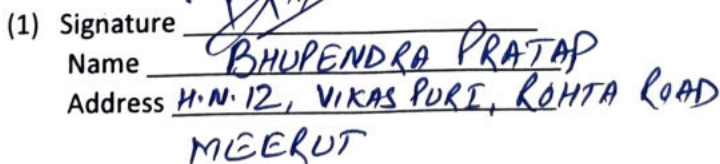 (1) Signature
Name BHUPENDRA PRATAP
Address H.N. 12, VIKAS PURI, ROHTA ROAD
MEERUT